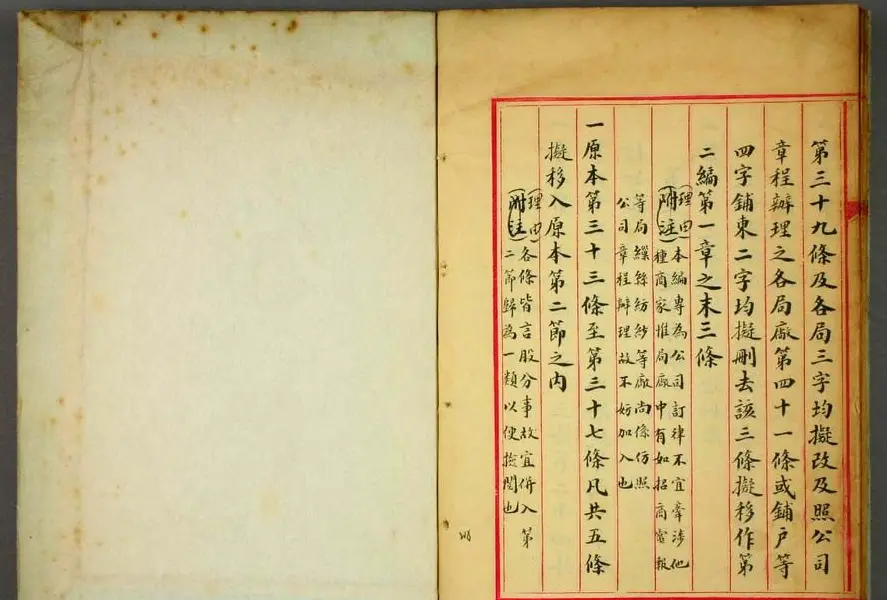 第三十九條及各局三字均擬改及照公司
章程辦理之各局廠第四十一條或鋪戶等
四字鋪東二字均擬刪去該三條擬移作第
二編第一章之末三條
(理由附注)
本編專為公司訂律不宜牽涉他
種商家惟局廠中有如招商電報
等局繅絲紡紗等廠尚係仿照
公司章程辦理故不妨加入也
一原本第三十三條至第三十七條凡共五條
擬移入原本第二節之內
(理由附注)
各條皆言股分事故宜併入第
二節歸為一類以便檢閱也